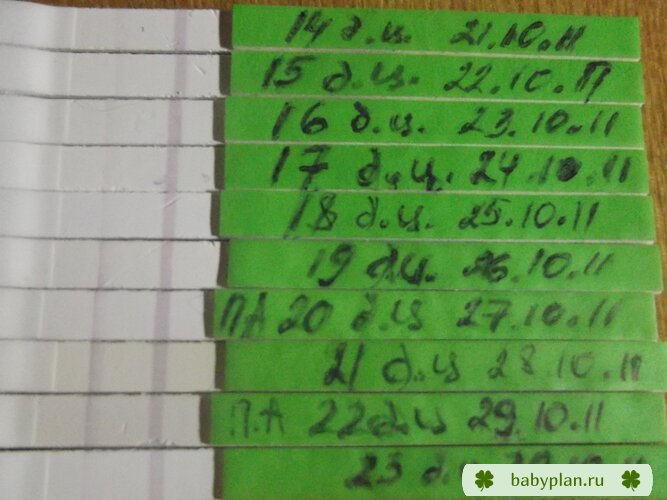 14 д.ц. 21.10.11
15 д.ц. 22.10.11
16 д.ц. 23.10.11
17 д.ц. 24.10.11
18 д.ц. 25.10.11
19 д.ц. 26.10.11
П.А 20 д.ц 27.10.11
21 д.ц 28.10.11
П.А 22 д.ц 29.10.11
23 д.ц
babyplan.ru